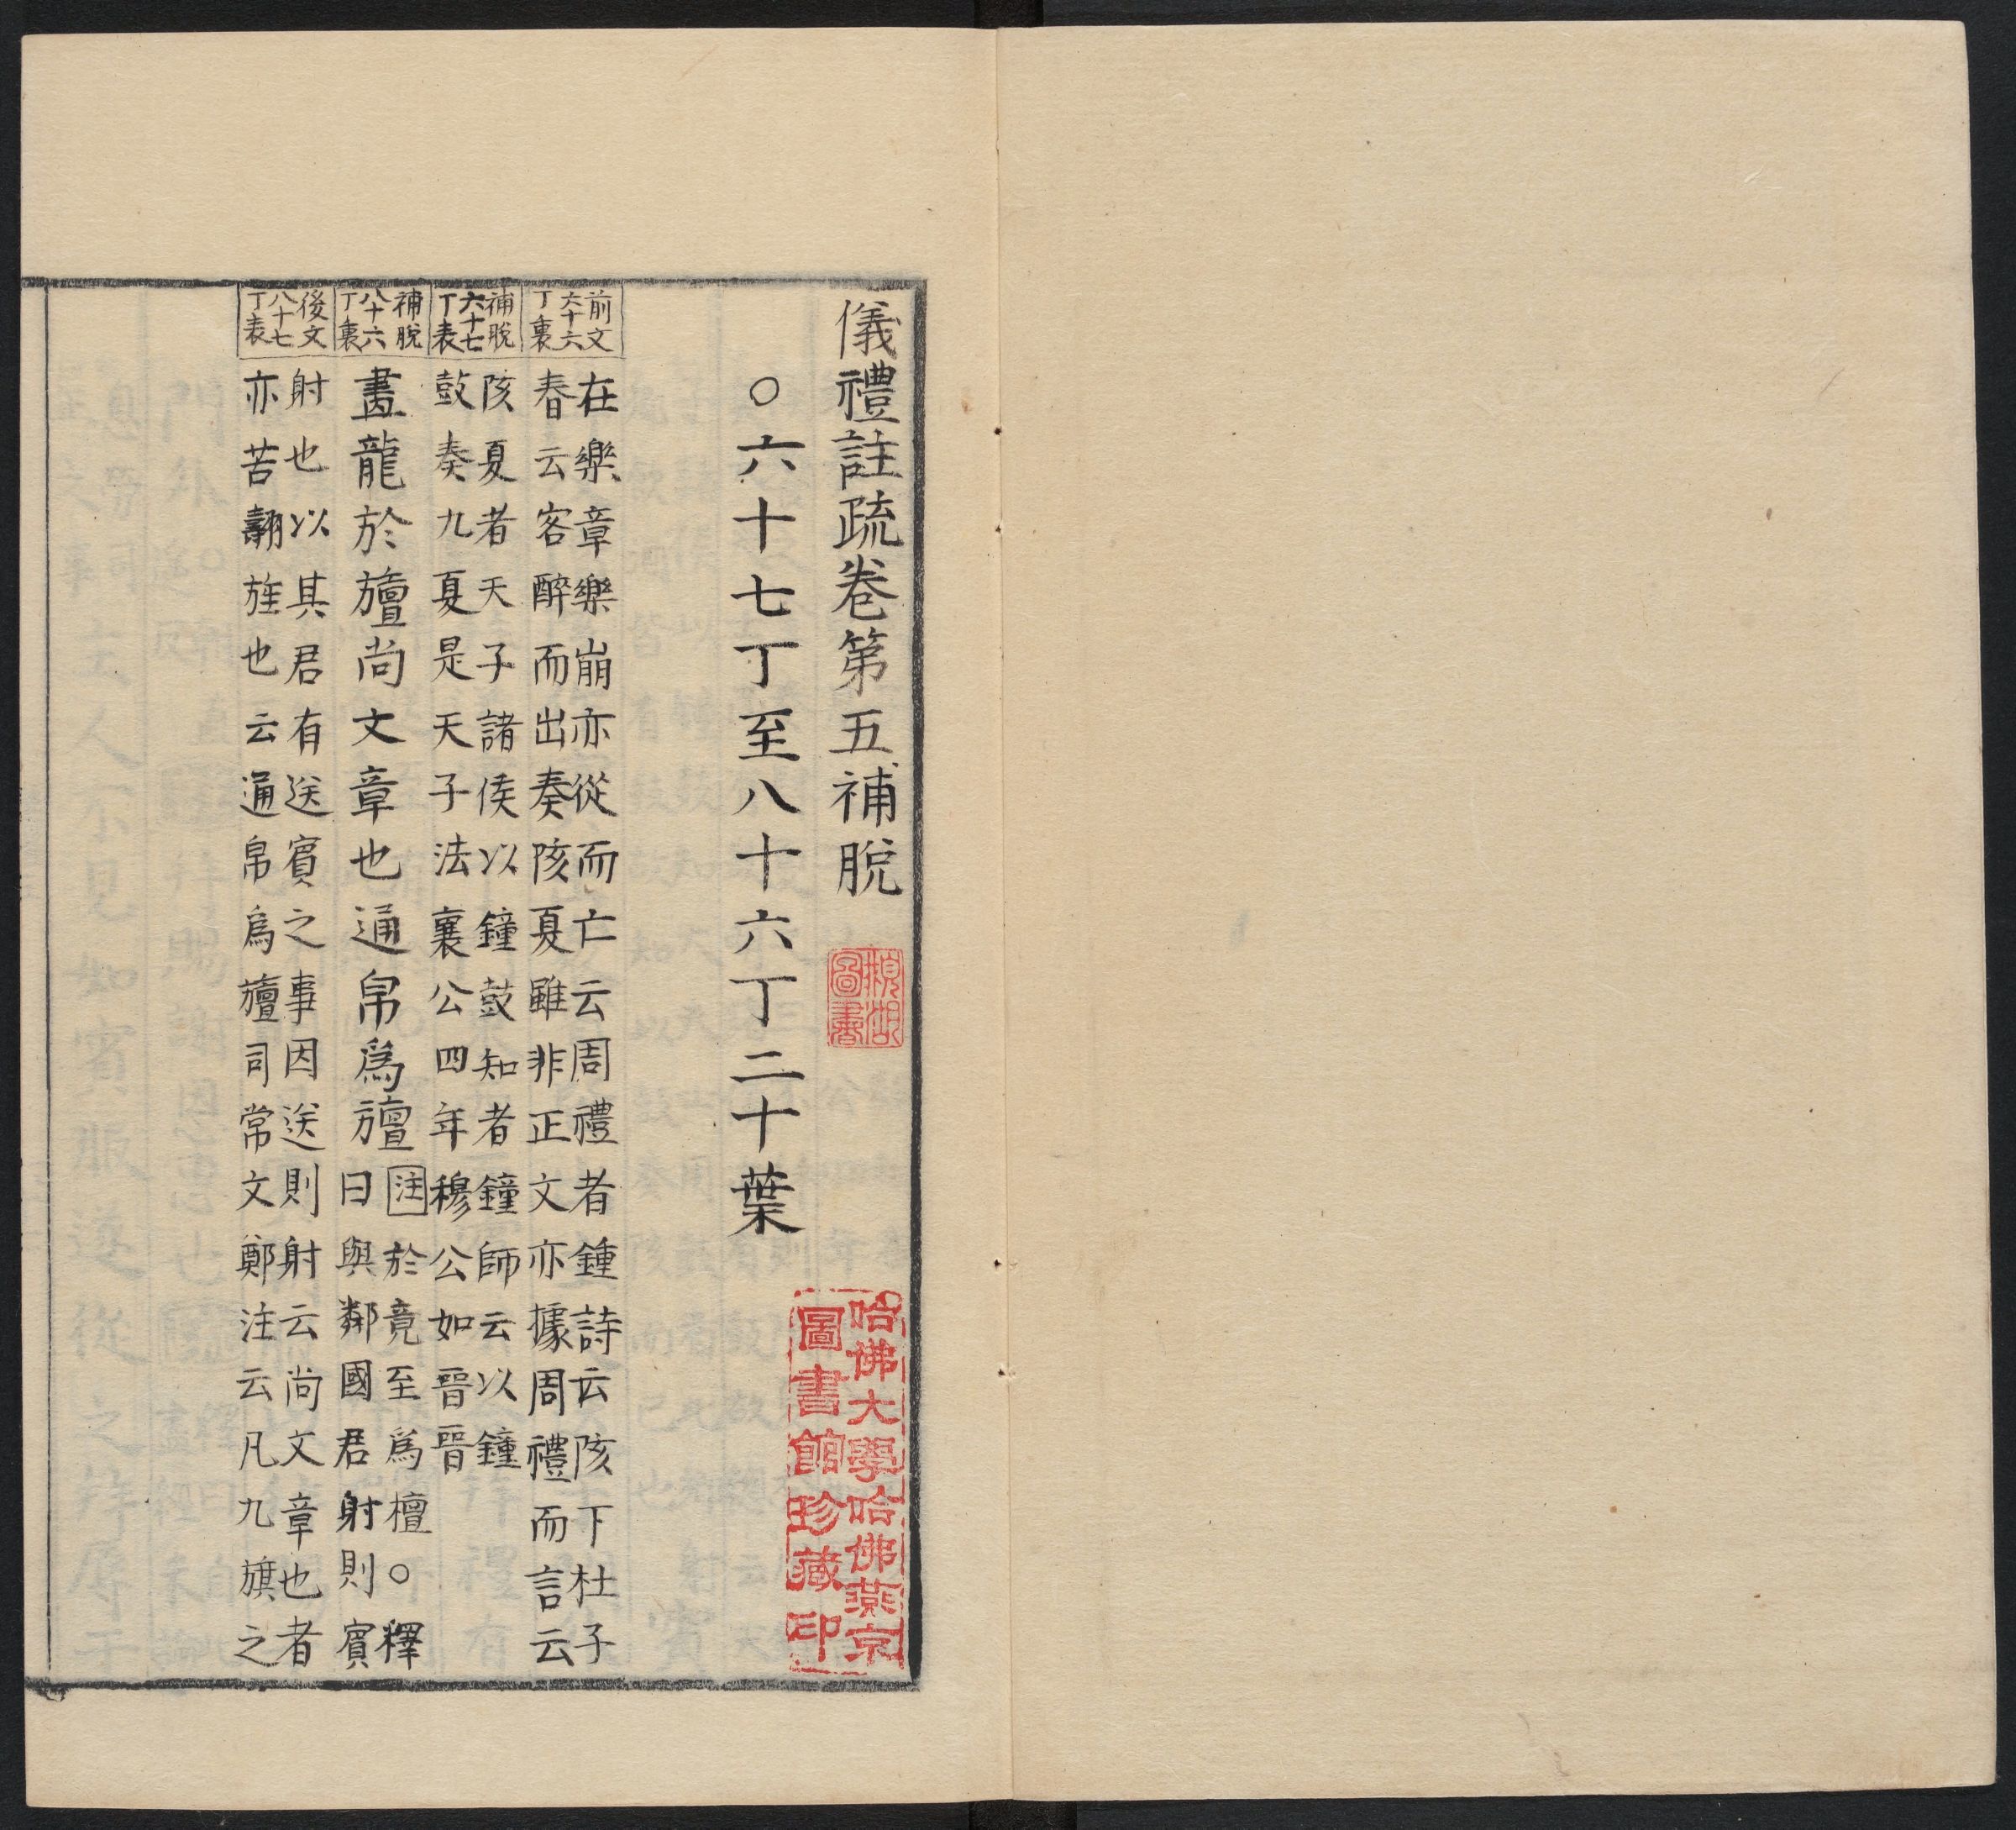 儀禮註疏卷第五補脫
○六十七丁至八十六丁二十葉
前文六十六丁裏
在樂章樂崩亦從而亡云周禮者鍾詩云陔下杜子
春云客醉而出奏陔夏雖非正文亦據周禮而言云
補脫六十七丁表
陔夏者天子諸侯以鐘鼓知者鐘師云以鐘
鼓奏九夏是天子法襄公四年穆公如晉晉
補脫八十六丁裏
畫龍於旜尚文章也通帛爲旜
注於竟至爲檀○釋
曰與鄰國君射則賓
後文八十七丁表
射也以其君有送賓之事因送則射云尚文章也者
亦若翿旌也云通帛爲旜司常文鄭注云凡九旗之
圖書
哈佛大學哈佛燕京
圖書館珍藏印